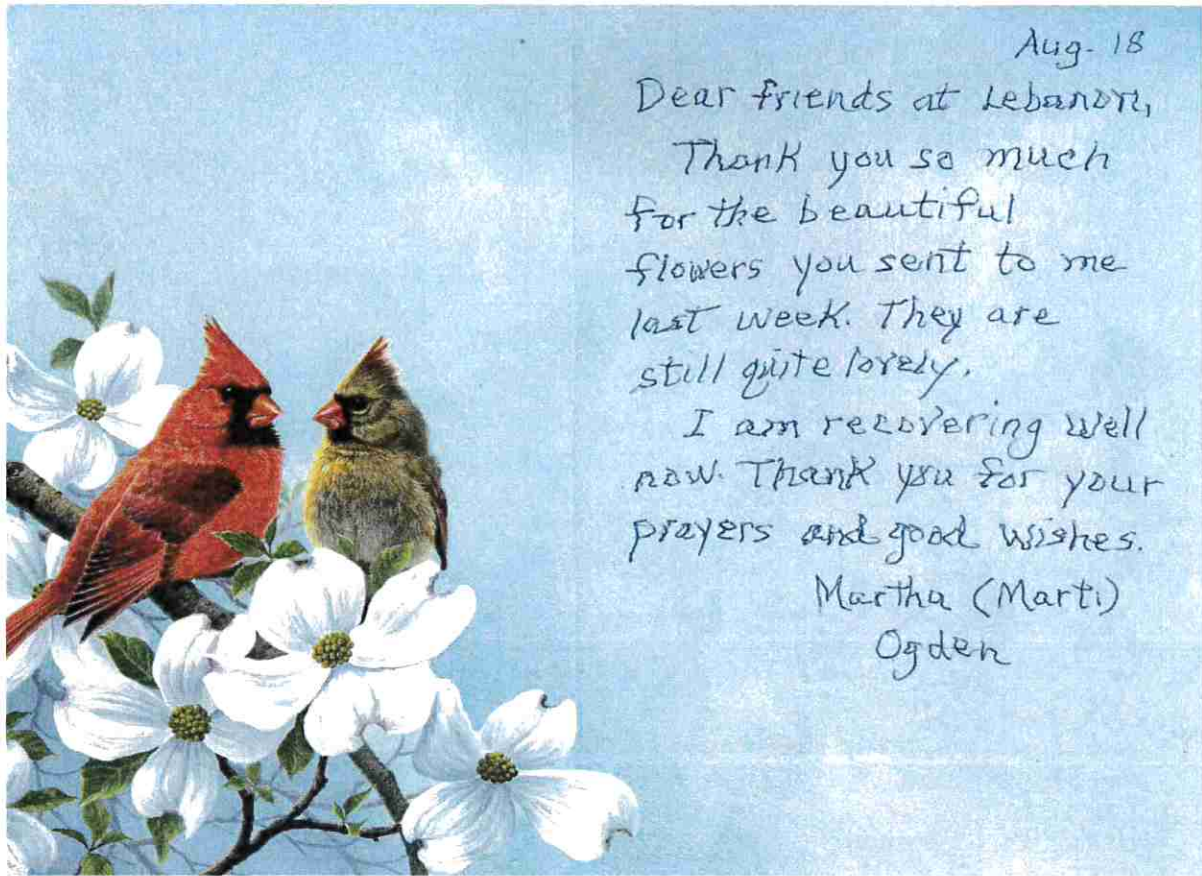 Aug. 18
Dear friends at Lebanon,
Thank you so much
for the beautiful
flowers you sent to me
last week. They are
still quite lovely.
I am recovering well
now. Thank you for your
prayers and good wishes.
Martha (Marti)
Ogden